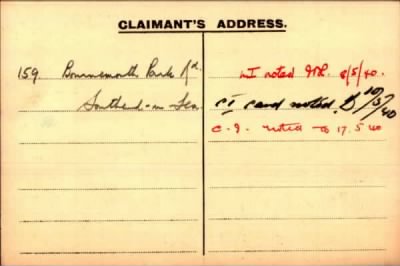 CLAIMANT'S ADDRESS.
159 Bournemouth Park Rd.
Southend-on-Sea.
noted 8/5/40.
CI card noted. 10/5/40
C.I. noted 17.5.40